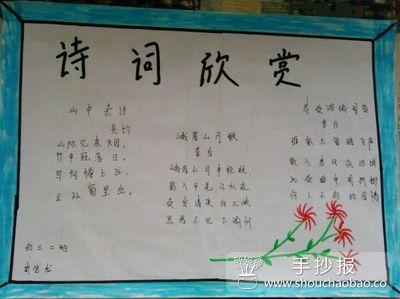 诗词欣赏
山中杂诗
吴均
山际见来烟，
竹中窥落日。
鸟向檐上飞，
云从窗里出。
初三二班
峨眉山月歌
李白
峨眉山月半轮秋
影入平羌江水流
夜发清溪向三峡
思君不见下渝州
春夜洛城闻笛
李白
谁家玉笛暗飞声
散入春风满洛城
此夜曲中闻折柳
何人不起故园情
手抄报
www.shouchaobao.co